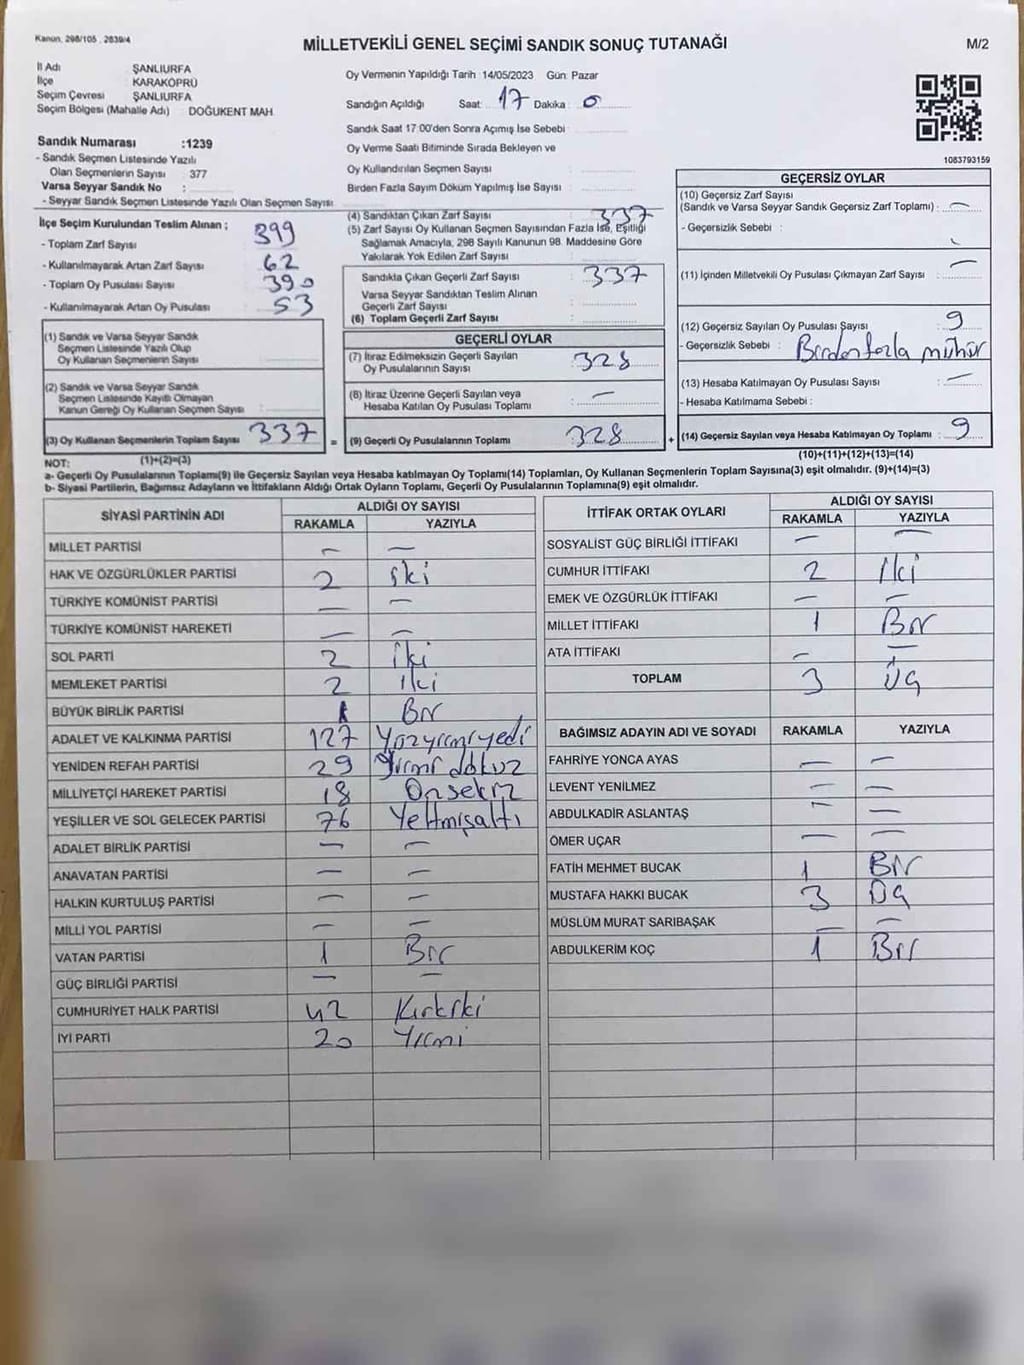 Kanun, 298/105 , 2839/4
MİLLETVEKİLİ GENEL SEÇİMİ SANDIK SONUÇ TUTANAĞI
M/2
İl Adı ŞANLIURFA
İlçe KARAKÖPRÜ
Seçim Çevresi ŞANLIURFA
Seçim Bölgesi (Mahalle Adı) DOĞUKENT MAH.
Sandık Numarası :1239
- Sandık Seçmen Listesinde Yazılı
Olan Seçmenlerin Sayısı 377
Varsa Seyyar Sandık No :
- Seyyar Sandık Seçmen Listesinde Yazılı Olan Seçmen Sayısı
Oy Vermenin Yapıldığı Tarih : 14/05/2023 Gün: Pazar
Sandığın Açıldığı Saat: 17 Dakika : 0
Sandık Saat 17:00'den Sonra Açımış İse Sebebi :
Oy Verme Saati Bitiminde Sırada Bekleyen ve
Oy Kullandırılan Seçmen Sayısı :
Birden Fazla Sayım Döküm Yapılmış İse Sayısı :
1083793159
İlçe Seçim Kurulundan Teslim Alınan ;
- Toplam Zarf Sayısı : 399
- Kullanılmayarak Artan Zarf Sayısı : 62
- Toplam Oy Pusulası Sayısı : 390
- Kullanılmayarak Artan Oy Pusulası : 53
(1) Sandık ve Varsa Seyyar Sandık
Seçmen Listesinde Yazılı Olup
Oy Kullanan Seçmenlerin Sayısı :
(2) Sandık ve Varsa Seyyar Sandık
Seçmen Listesinde Kayıtlı Olmayan
Kanun Gereği Oy Kullanan Seçmen Sayısı :
(3) Oy Kullanan Seçmenlerin Toplam Sayısı : 337 =
(1)+(2)=(3)
(4) Sandıktan Çıkan Zarf Sayısı : 337
(5) Zarf Sayısı Oy Kullanan Seçmen Sayısından Fazla İse, Eşitliği
Sağlamak Amacıyla, 298 Sayılı Kanunun 98. Maddesine Göre
Yakılarak Yok Edilen Zarf Sayısı :
Sandıkta Çıkan Geçerli Zarf Sayısı : 337
Varsa Seyyar Sandıktan Teslim Alınan
Geçerli Zarf Sayısı :
(6) Toplam Geçerli Zarf Sayısı :
GEÇERLİ OYLAR
(7) İtiraz Edilmeksizin Geçerli Sayılan
Oy Pusulalarının Sayısı : 328
(8) İtiraz Üzerine Geçerli Sayılan veya
Hesaba Katılan Oy Pusulası Toplamı : —
(9) Geçerli Oy Pusulalarının Toplamı : 328 +
GEÇERSİZ OYLAR
(10) Geçersiz Zarf Sayısı
(Sandık ve Varsa Seyyar Sandık Geçersiz Zarf Toplamı) : —
- Geçersizlik Sebebi :
(11) İçinden Milletvekili Oy Pusulası Çıkmayan Zarf Sayısı : —
(12) Geçersiz Sayılan Oy Pusulası Sayısı : 9
- Geçersizlik Sebebi : Birden fazla mühür
(13) Hesaba Katılmayan Oy Pusulası Sayısı : —
- Hesaba Katılmama Sebebi :
(14) Geçersiz Sayılan veya Hesaba Katılmayan Oy Toplamı : 9
(10)+(11)+(12)+(13)=(14)
NOT:
a- Geçerli Oy Pusulalarının Toplamı(9) ile Geçersiz Sayılan veya Hesaba katılmayan Oy Toplamı(14) Toplamları, Oy Kullanan Seçmenlerin Toplam Sayısına(3) eşit olmalıdır. (9)+(14)=(3)
b- Siyasi Partilerin, Bağımsız Adayların ve İttifakların Aldığı Ortak Oyların Toplamı, Geçerli Oy Pusulalarının Toplamına(9) eşit olmalıdır.
SİYASİ PARTİNİN ADI ALDIĞI OY SAYISI
RAKAMLA YAZIYLA
MİLLET PARTİSİ — —
HAK VE ÖZGÜRLÜKLER PARTİSİ 2 iki
TÜRKİYE KOMÜNİST PARTİSİ — —
TÜRKİYE KOMÜNİST HAREKETİ — —
SOL PARTİ 2 İki
MEMLEKET PARTİSİ 2 İki
BÜYÜK BİRLİK PARTİSİ 1 Bir
ADALET VE KALKINMA PARTİSİ 127 Yüzyirmiyedi
YENİDEN REFAH PARTİSİ 29 Yirmi dokuz
MİLLİYETÇİ HAREKET PARTİSİ 18 Onsekiz
YEŞİLLER VE SOL GELECEK PARTİSİ 76 Yetmişaltı
ADALET BİRLİK PARTİSİ — —
ANAVATAN PARTİSİ — —
HALKIN KURTULUŞ PARTİSİ — —
MİLLİ YOL PARTİSİ — —
VATAN PARTİSİ 1 Bir
GÜÇ BİRLİĞİ PARTİSİ — —
CUMHURİYET HALK PARTİSİ 42 Kırkiki
İYİ PARTİ 20 Yirmi
İTTİFAK ORTAK OYLARI ALDIĞI OY SAYISI
RAKAMLA YAZIYLA
SOSYALİST GÜÇ BİRLİĞİ İTTİFAKI — —
CUMHUR İTTİFAKI 2 İki
EMEK VE ÖZGÜRLÜK İTTİFAKI — —
MİLLET İTTİFAKI 1 Bir
ATA İTTİFAKI — —
TOPLAM 3 Üç
BAĞIMSIZ ADAYIN ADI VE SOYADI RAKAMLA YAZIYLA
FAHRİYE YONCA AYAS — —
LEVENT YENİLMEZ — —
ABDULKADİR ASLANTAŞ — —
ÖMER UÇAR — —
FATİH MEHMET BUCAK 1 Bir
MUSTAFA HAKKI BUCAK 3 Üç
MÜSLÜM MURAT SARIBAŞAK — —
ABDULKERİM KOÇ 1 Bir